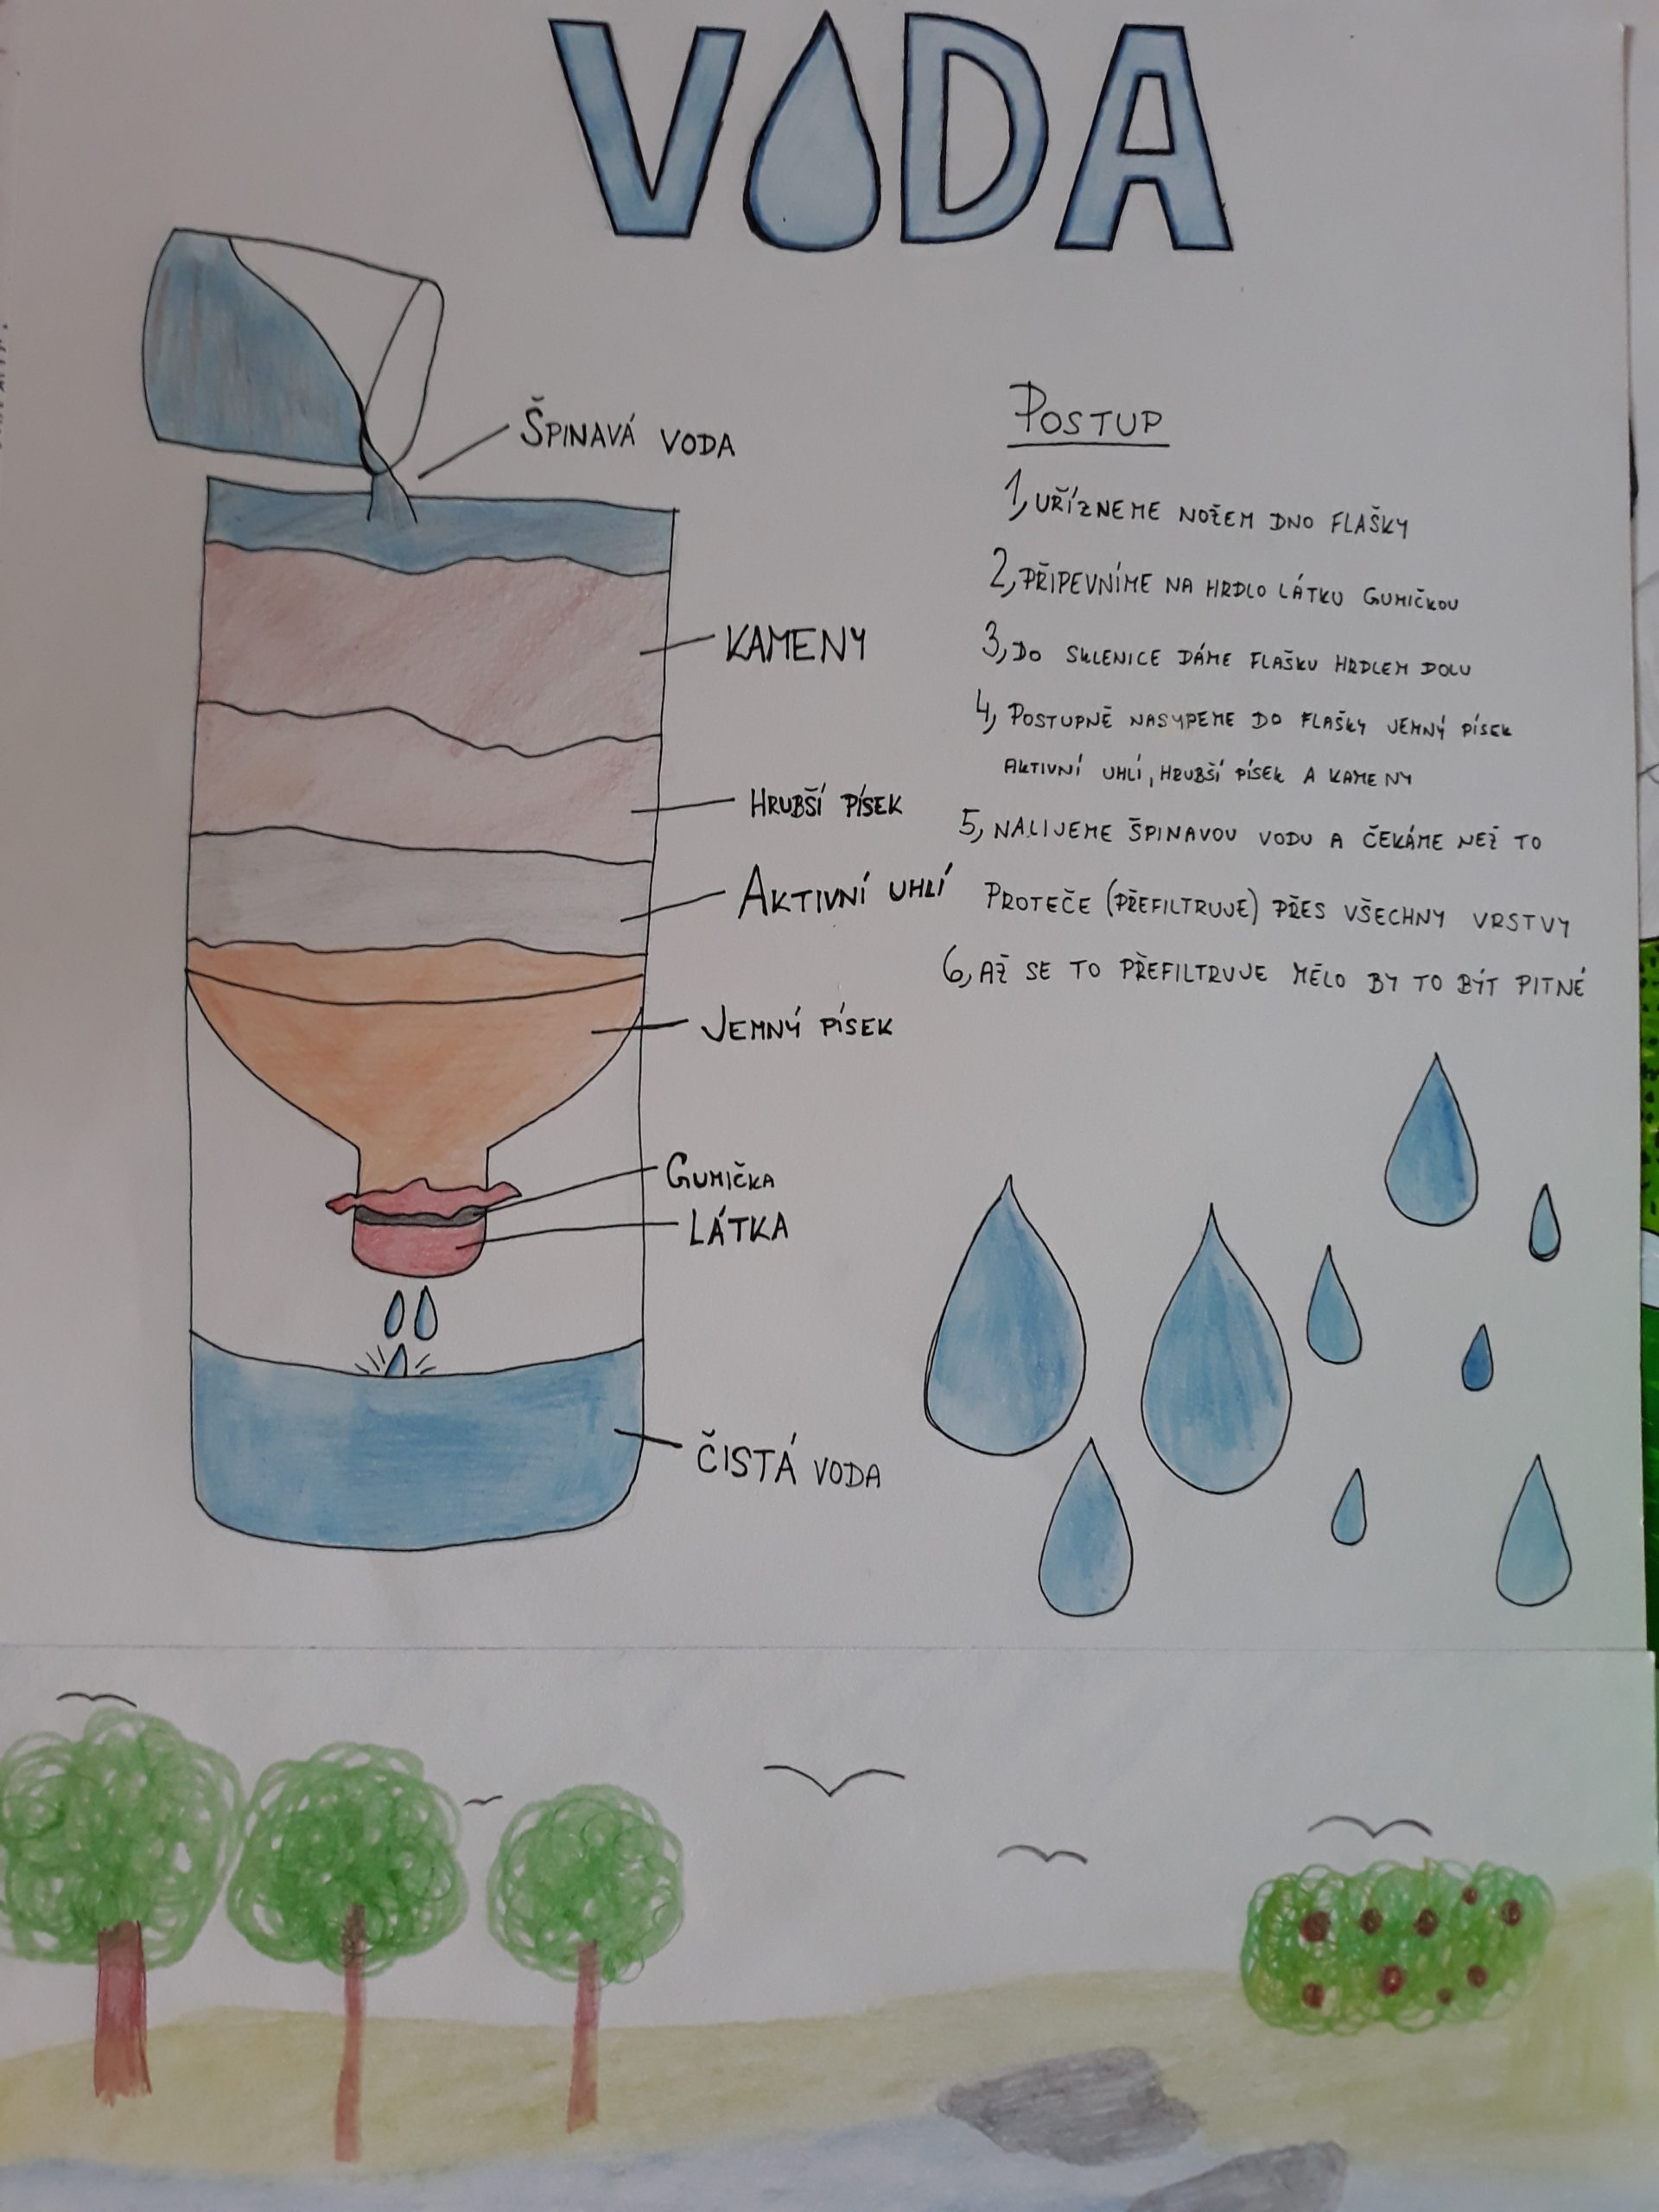 VODA
ŠPINAVÁ VODA
KAMENY
HRUBŠÍ PÍSEK
AKTIVNÍ UHLÍ
JEMNÝ PÍSEK
GUMIČKA
LÁTKA
ČISTÁ VODA
POSTUP
1, UŘÍZNEME NOŽEM DNO FLAŠKY
2, PŘIPEVNÍME NA HRDLO LÁTKU GUMIČKOU
3, DO SKLENICE DÁME FLAŠKU HRDLEM DOLU
4, POSTUPNĚ NASYPEME DO FLAŠKY JEMNÝ PÍSEK
AKTIVNÍ UHLÍ, HRUBŠÍ PÍSEK A KAMENY
5, NALIJEME ŠPINAVOU VODU A ČEKÁME NEŽ TO
PROTEČE (PŘEFILTRUJE) PŘES VŠECHNY VRSTVY
6, AŽ SE TO PŘEFILTRUJE MĚLO BY TO BÝT PITNÉ